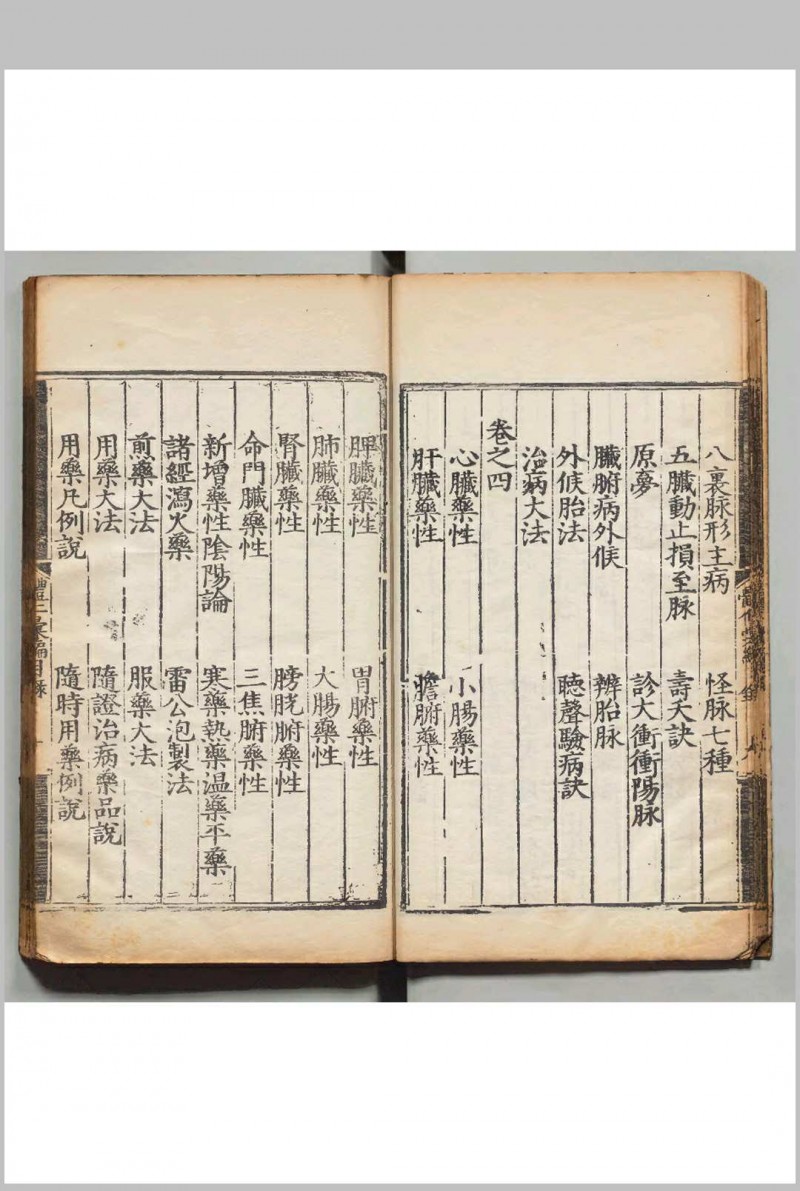 八裏脉形主病 怪脉七種
五臟動止損至脉 壽夭訣
原夢 診大衝衝陽脉
臟腑病外候 辨胎脉
外候胎法 聴聲驗病訣
治病大法
卷之四
心臟藥性 小腸藥性
肝臟藥性 膽腑藥性
脾臟藥性 胃腑藥性
肺臟藥性 大腸藥性
腎臟藥性 膀胱腑藥性
命門臟藥性 三焦腑藥性
新增藥性陰陽論 寒藥熱藥温藥平藥
諸經瀉火藥 雷公泡製法
煎藥大法 服藥大法
用藥大法 隨證治病藥品說
用藥凡例說 隨時用藥例說
彙編目録